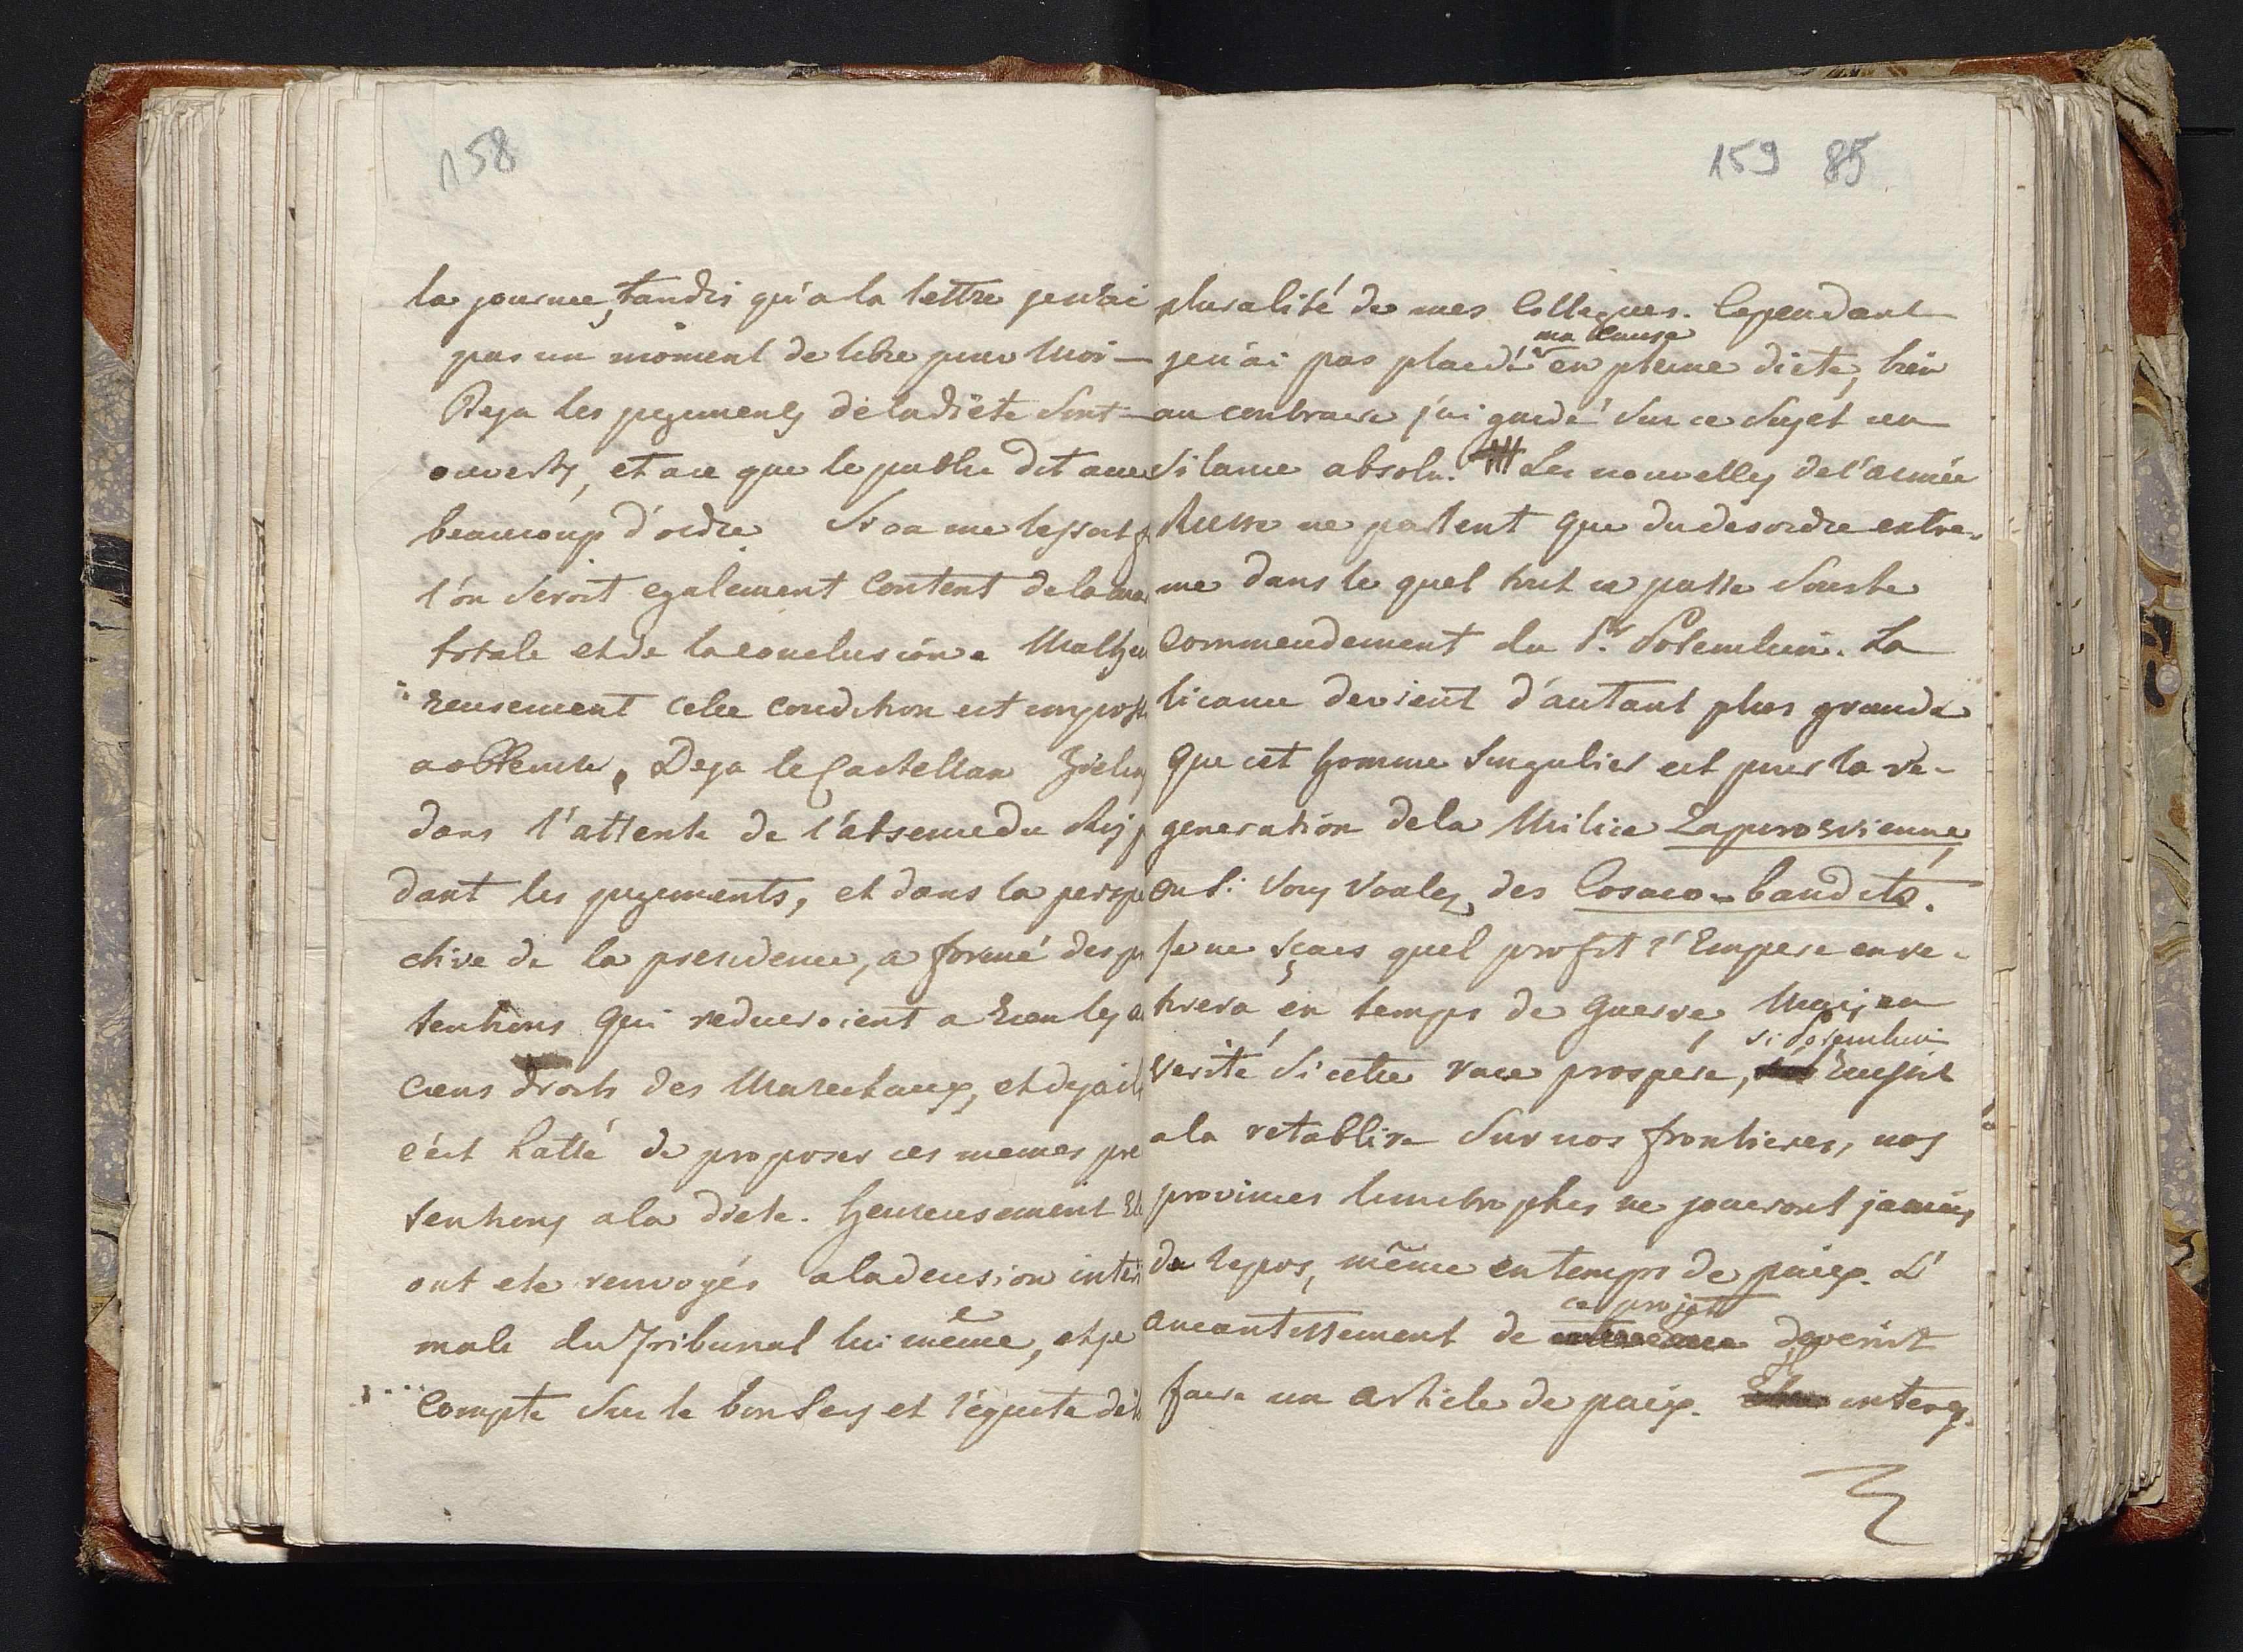 158
la journee, tandis qu'a la lettre je n'ai
pas un moment de libre pour moi —
Deja les jugements de la diete sont —
ouverts, et a ce que le public dit avec
beaucoup d'ordre Si on me lessoit
l'on seroit egalement content de la
totale et de la conclusion. Malheu
reusement cette condition est impossi
a obtenir. Deja le Castellan
dans l'attente de l'absence du Roy p
dant les jugements, et dans la perspe
ctive de la presidence, a formé des pr
tentions qui reduiroient a rien les a
ciens droits des Marechaux, et deja il
c'est hatté de proposer ces memes pre
tentions a la diete. Heureusement El
ont ete renvoyés a la decision inter
male du Tribunal lui même, et je
Compte sur le bon sens et l'équité de
159 85
pluralité de mes Collegues. Cependant
ma cause
je n'ai pas plaidé en pleine diete, bien
au contraire j'ai gardé sur ce sujet un
silance absolu. Les nouvelles de l'armée
Russe ne parlent que du desordre extre-
me dans le quel tout ce passe sous le
Commendement du Pr. Potemkin. La
licance devient d'autant plus grande
que cet homme singulier est pour la re-
generation de la Milice Zaporovienne,
ou si vous voulez, des Cosaco-bandits.
Je ne sçais quel profit l'Empire en re-
tirera en temps de guerre, Mais en
si Potemkin
verité si cette race prospere, reussit
a la retablire sur nos frontieres, nos
provinces limitrophes ne jouiront jamais
de repos, même en temps de paix. L'
ce projet
aneantissement de devroit
faire un article de paix. interes.